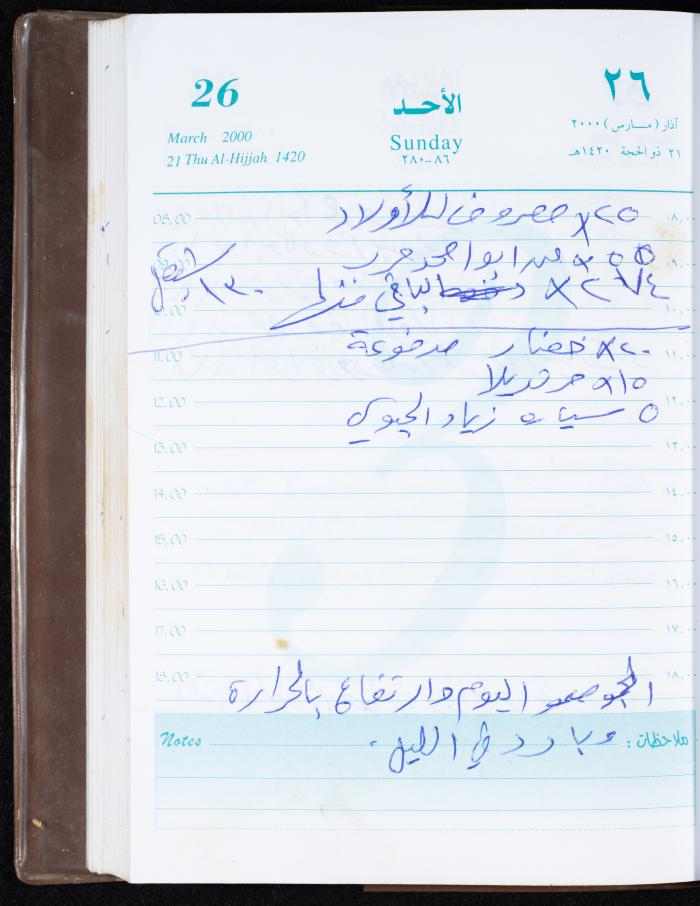 26
الأحـد
٢٦
March 2000
Sunday
آذار (مـــارس) ٢٠٠٠
21 Thu Al-Hijjah 1420
٨٦-٢٨٠
٢١ ذو الحجة ١٤٢٠هـ
08.00 ٠٨.٠٠
٢٥x مصروف للأولاد
09.00 ٠٩.٠٠
من ابو احمد حرب
10.00 ١٠.٠٠
٢٧٤x الباقي منها ١٣٠
11.00 ١١.٠٠
٢٠x خضار مدفوعة
١٥x
12.00 ١٢.٠٠
٥ سيارة زياد الجيوي
13.00 ١٣.٠٠
14.00 ١٤.٠٠
15.00 ١٥.٠٠
16.00 ١٦.٠٠
17.00 ١٧.٠٠
18.00 ١٨.٠٠
الجو صحو اليوم وارتفاع بالحرارة
Notes ملاحظات :
وبارد في الليل .